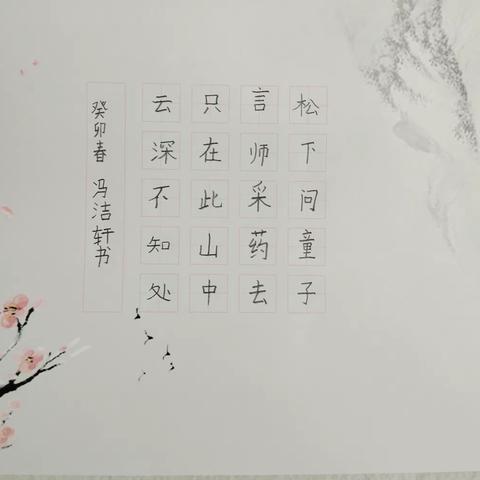 松下问童子
言师采药去
只在此山中
云深不知处
癸卯春 冯洁轩书